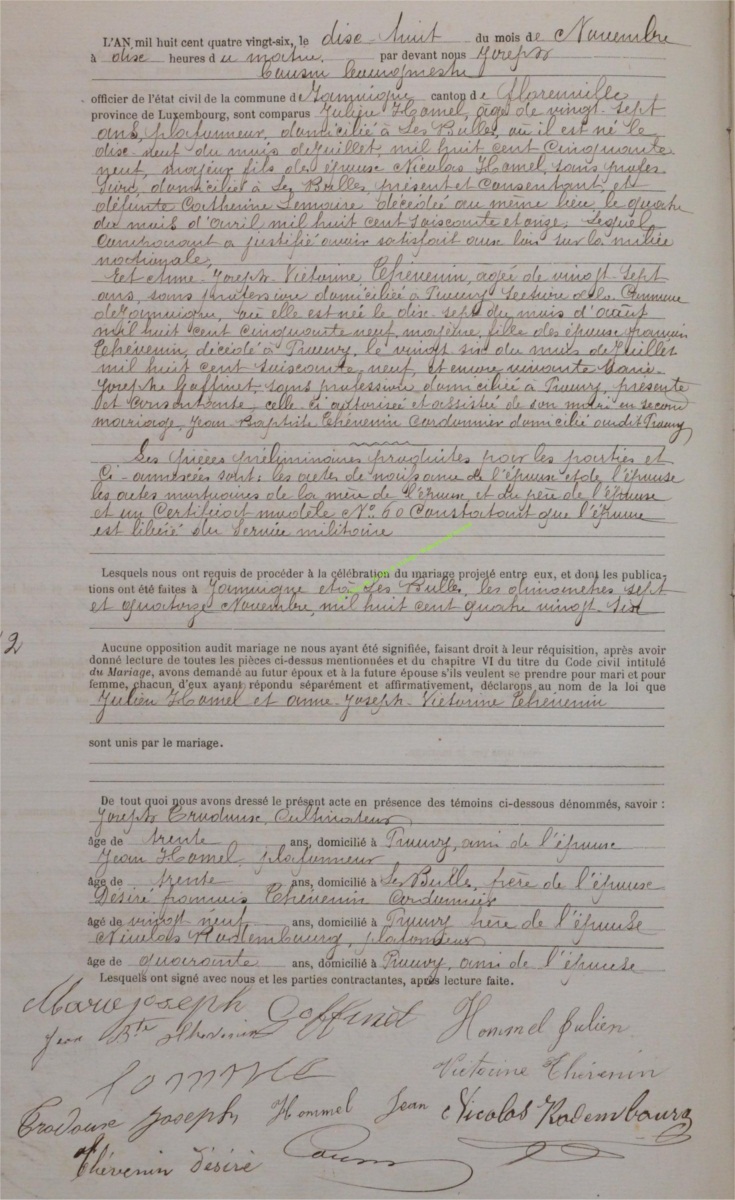 L'AN mil huit cent quatre vingt-six, le disc-huit du mois de Novembre
à disc heures du matin, par devant nous Joseph
Causin bourgmestre
officier de l'état civil de la commune de Jamoigne canton de Florenville
province de Luxembourg, sont comparus Julien Hamel, âgé de vingt-sept
ans, plafonneur, domicilié à Les Bulles, où il est né le
disc-neuf du mois de Juillet, mil huit cent cinquante
neuf, majeur fils des épouse Nicolas Hamel, sans profes
sion, domicilié à Les Bulles, présent et consentant, et
défunte Catherine Lemaire décédée au même lieu, le quatre
du mois d'avril mil huit cent soiscante et onze, lequel
comparant a justifié avoir satisfait aux lois sur la milice
nactionale,
Et Anne-Joseph-Victorine Thévenin, âgée de vingt-sept
ans, sans profession domiciliée à Prouvy section de la Commune
de Jamoigne, où elle est née le disc-sept du mois d'août
mil huit cent cinquante neuf, majeure, fille des épouse françois
Thévenin, décédé à Prouvy, le vingt six du mois de Juillet
mil huit cent soiscante neuf, et encore vivante Marie
Josephe Goffinet, sans profession domiciliée à Prouvy, présente
et consentante, celle ci autorisée et assistée de son mari en second
mariage, Jean Baptiste Thévenin Cordonnier domicilié audit Prouvy
Les pièces préliminaires produites par les parties et
Ci-annexées sont: les actes de naissance de l'époux et de l'épouse
les actes mortuaires de la mère de l'époux, et du père de l'épouse
et un Certificat modèle No 60 Constatant que l'époux
est libéré du Service militaire
Lesquels nous ont requis de procéder à la célébration du mariage projeté entre eux, et dont les publica-
tions ont été faites à Jamoigne et à Les Bulles, les dimanches sept
et quatorze Novembre, mil huit cent quatre vingt-six
12
Aucune opposition audit mariage ne nous ayant été signifiée, faisant droit à leur réquisition, après avoir
donné lecture de toutes les pièces ci-dessus mentionnées et du chapitre VI du titre du Code civil intitulé
du Mariage, avons demandé au futur époux et à la future épouse s'ils veulent se prendre pour mari et pour
femme, chacun d'eux ayant répondu séparément et affirmativement, déclarons au nom de la loi que
Julien Hamel et anne-Joseph-Victorine Thévenin
sont unis par le mariage.
De tout quoi nous avons dressé le présent acte en présence des témoins ci-dessous dénommés, savoir :
Joseph Trodoux, Cultivateur
âge de trente ans, domicilié à Prouvy, ami de l'épouse
Jean Hamel, plafonneur
âge de trente ans, domicilié à Les Bulles, frère de l'époux
Désiré françois Thévenin Cordonnier
âgé de vingt neuf ans, domicilié à Prouvy frère de l'épouse
Nicolas Rodembourg, plafonneur
âge de quarante ans, domicilié à Prouvy, ami de l'épouse
Lesquels ont signé avec nous et les parties contractantes, après lecture faite.
Marie joseph Goffinet Hommel Julien
Jean Bte thevenin
Victorine Thévenin
Trodoux Joseph Hommel Jean Nicolas Rodembourg
Thévenin désiré Causin